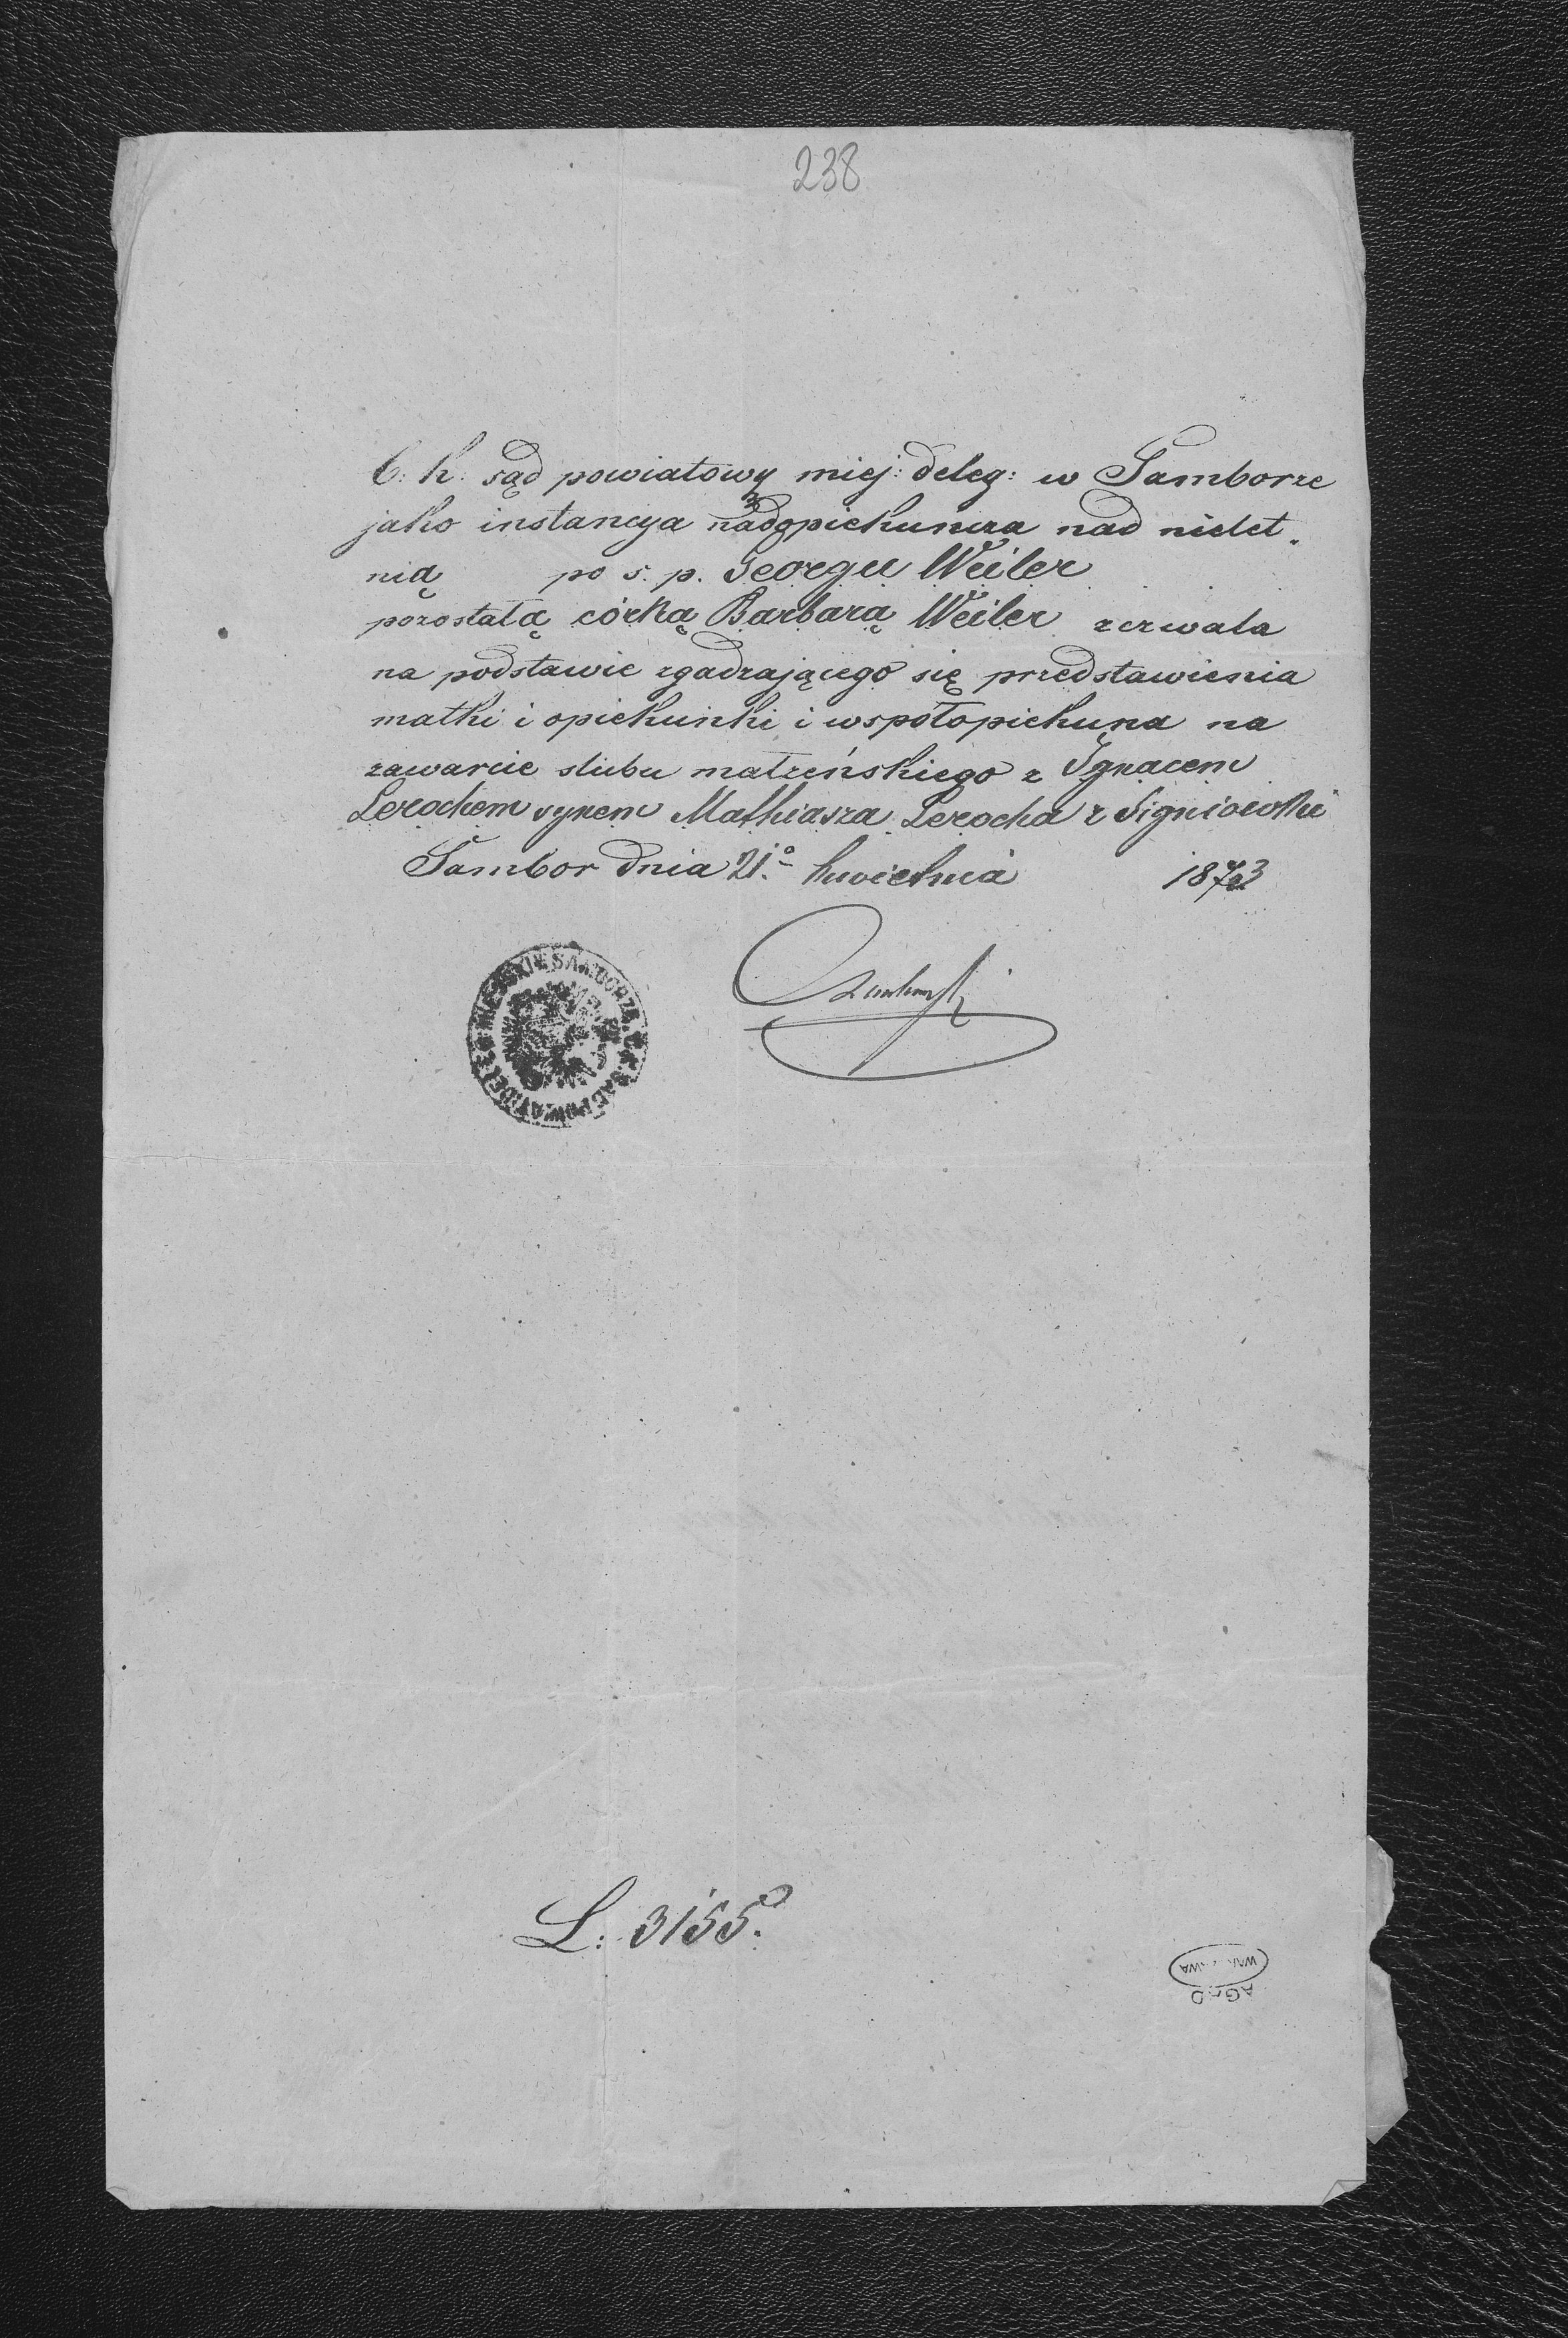 238
C: k: sąd powiatowy miej: deleg: w Samborze
jako instancya nadopiekuncza nad nielet„
nią po s. p. Georgu Weiler
pozostałą córką Barbarą Weiler zezwala
na podstawie zgadzającego się przedstawienia
matki i opiekunki i współopiekuna na
zawarcie slubu małżeńskiego z Ignacem
Lerochem synem Mathiasza Lerocha z Signiowki
Sambor dnia 21.° kwietnia 1873
L: 3155.
AGAD